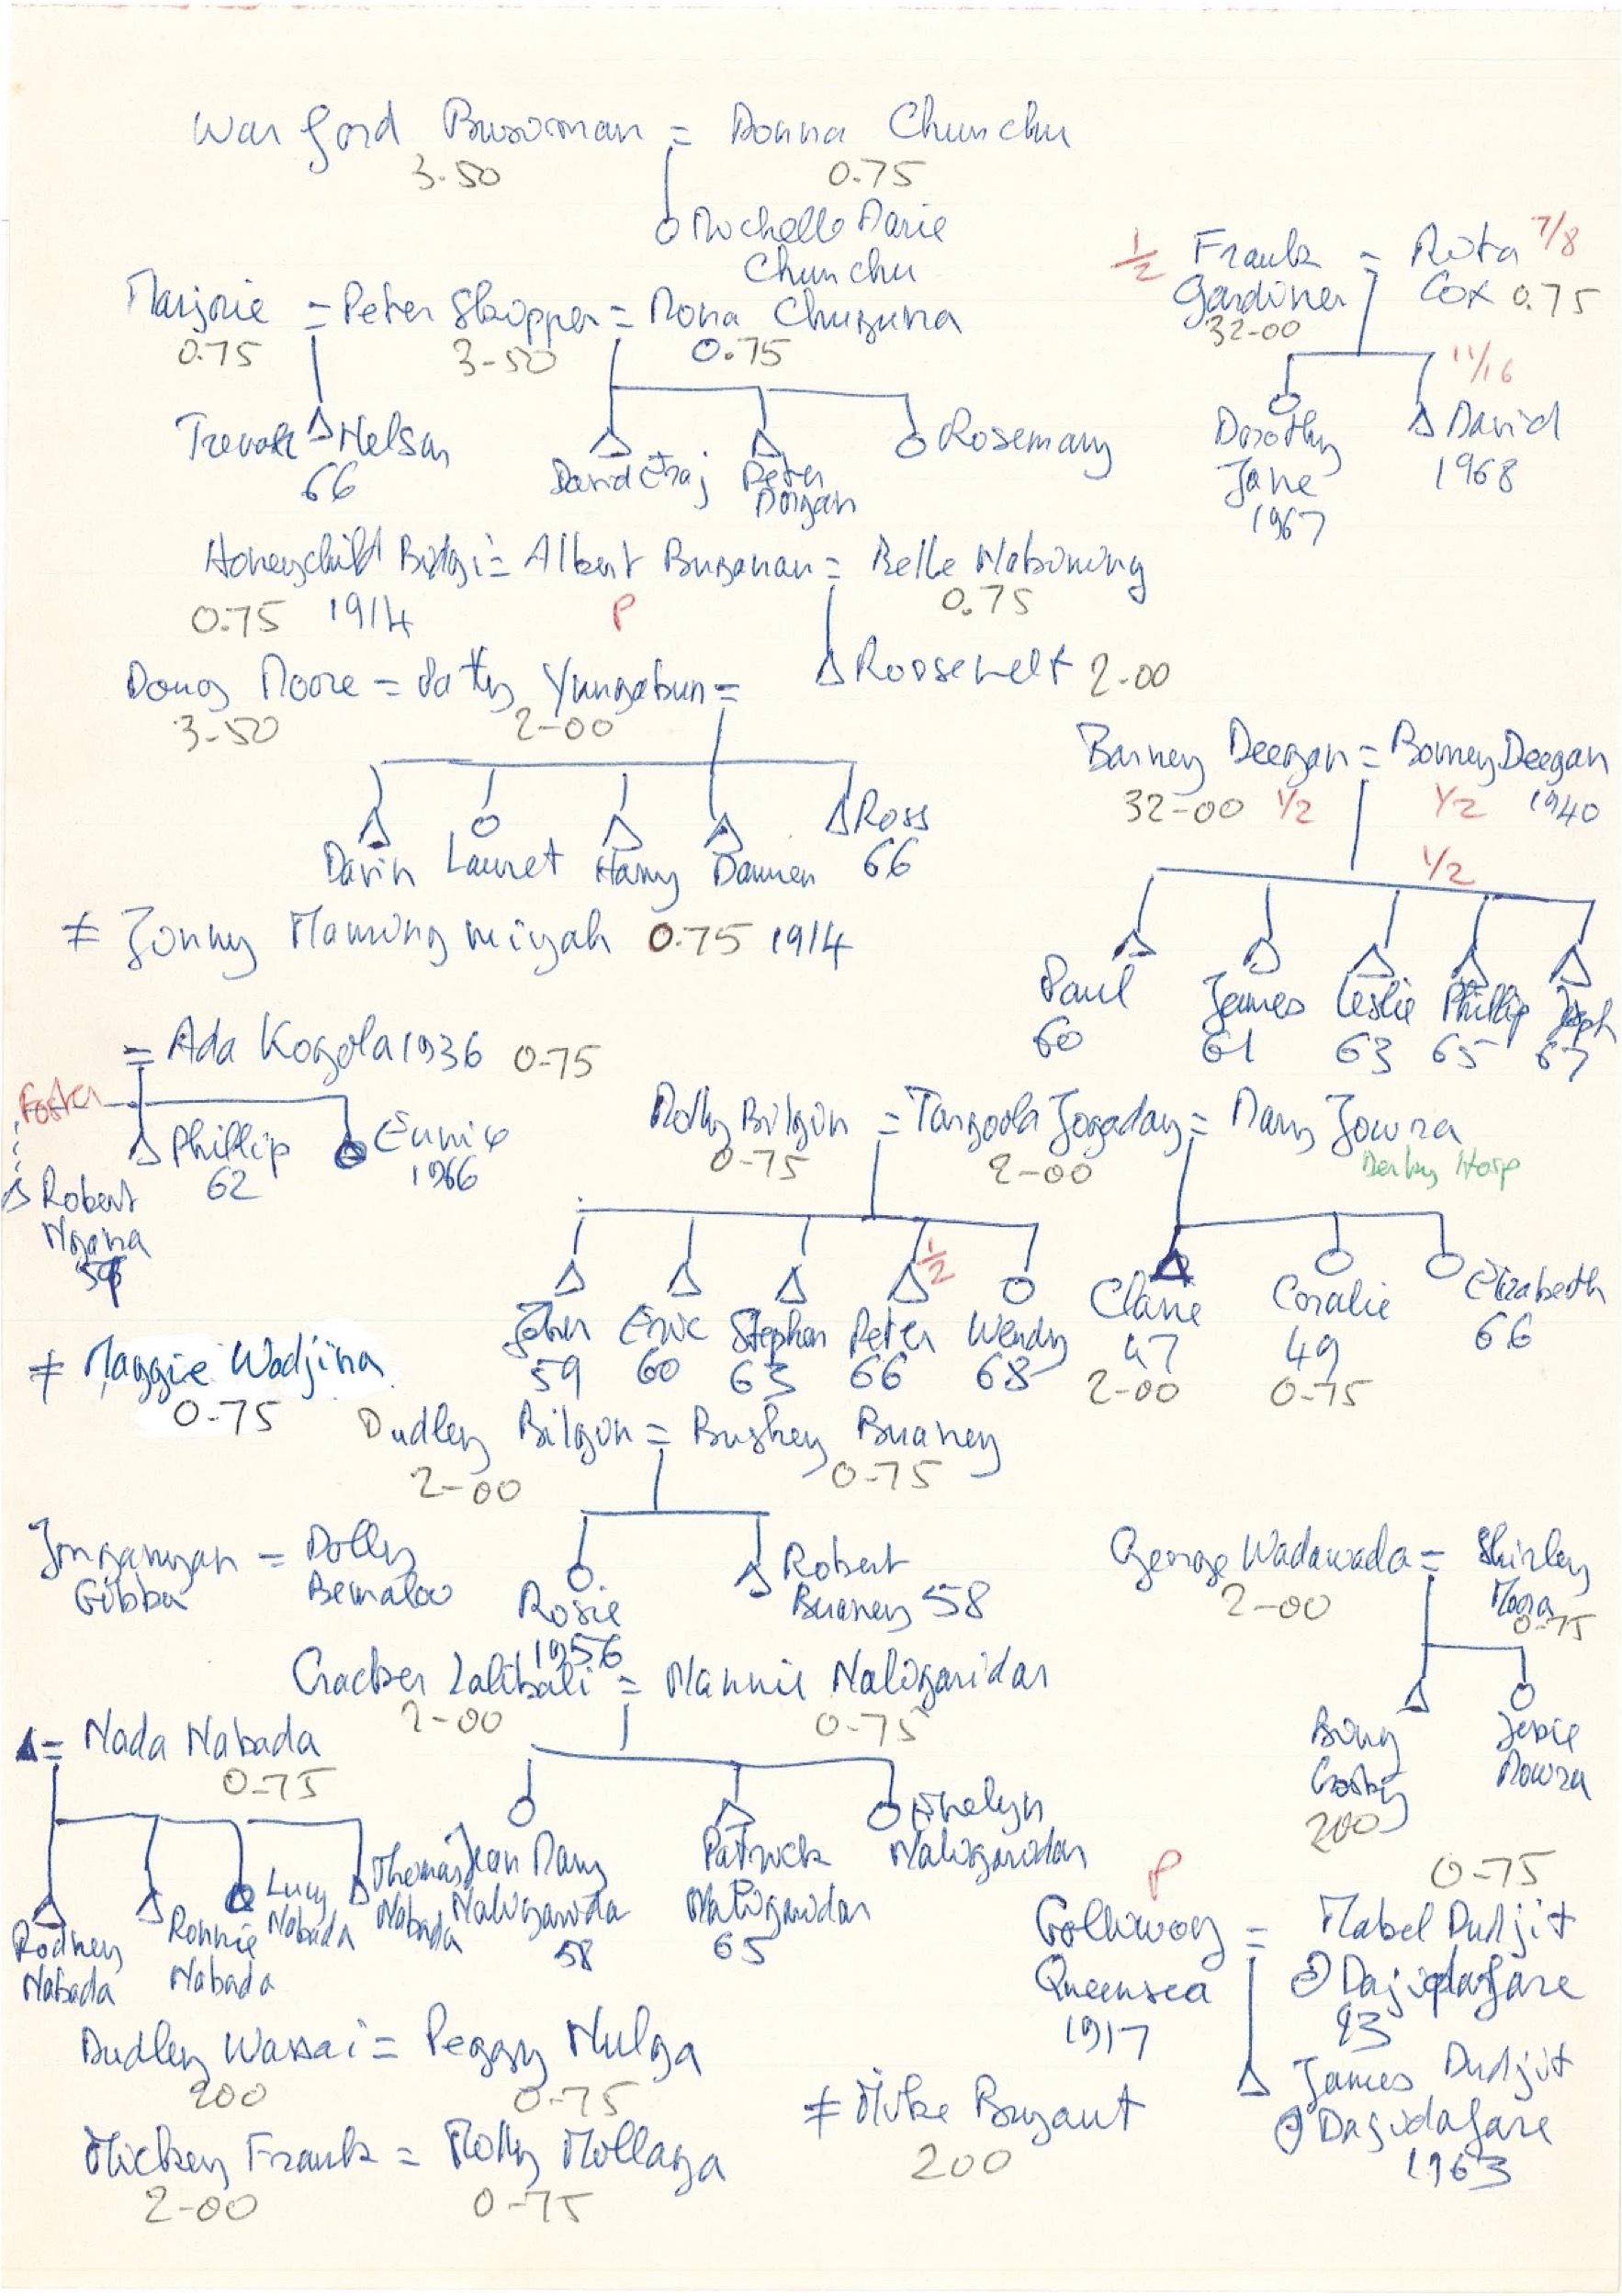 War ford Busoman = Donna Chunchu
3-50 0.75
Rochelle Marie
Chunchu
1/2 Frank = Rita 7/8
Gardiner Cox 0.75
32-00
Marjorie = Peter Skipper = Mona Chuguna
0.75 3-50 0.75
11/16
Trevor Nelson
66
David Craj Peter Rosemary
Dorgan
Dorothy David
Jane 1968
1967
Honeychild Bidgi = Albert Buganan = Belle Nabining
0.75 1914 P 0.75
Roosewelt 2-00
Doug Moore = Patty Yungabun =
3-50 2-00
Barney Deegan = Bonney Deegan
32-00 1/2 1/2 1940
1/2
Darin Lauret Harry Damien Ross
66
≠ Jonny Maming miyah 0.75 1914
Paul James Leslie Phillip Joseph
60 61 63 65 67
= Ada Kogola 1936 0-75
Foster
Phillip Eunice
62 1966
Robert
Ngana
Molly Bilgin = Tangoola Jogaday = Mary Jowra
0-75 2-00 Derby Hosp
1/2
John Eric Stephen Peter Wendy
59 60 63 66 68
Claire Coralie Elizabeth
47 49 66
2-00 0-75
≠ Maggie Wadjina
0-75
Dudley Bilgin = Bushey Buaney
2-00 0-75
Jnganyan = Dolly
Gibba Bemaloo
Rosie Robert
1956 Buaney 58
George Wadawada = Shirley
2-00 0-75
Cracker Lalibali = Nannie Naligaridan
2-00 0-75
Bing Josie
Crosby Mowra
200
= Nada Nabada
0-75
Rodney Ronnie Lucy Thomas
Nabada Nabada Nabada Nabada
Jean Mary Patrick Evelyn
Naligarida Naligaridan Naligaridan
58 65
P 0-75
Golliwog = Mabel Dudjit
Queensea
1917
Dudley Wassai = Peggy Nulga
200 0-75
James Dudjit
Dagidagare
1963
≠ Mike Bryant
200
Mickey Frank = Molly Mollaga
2-00 0-75